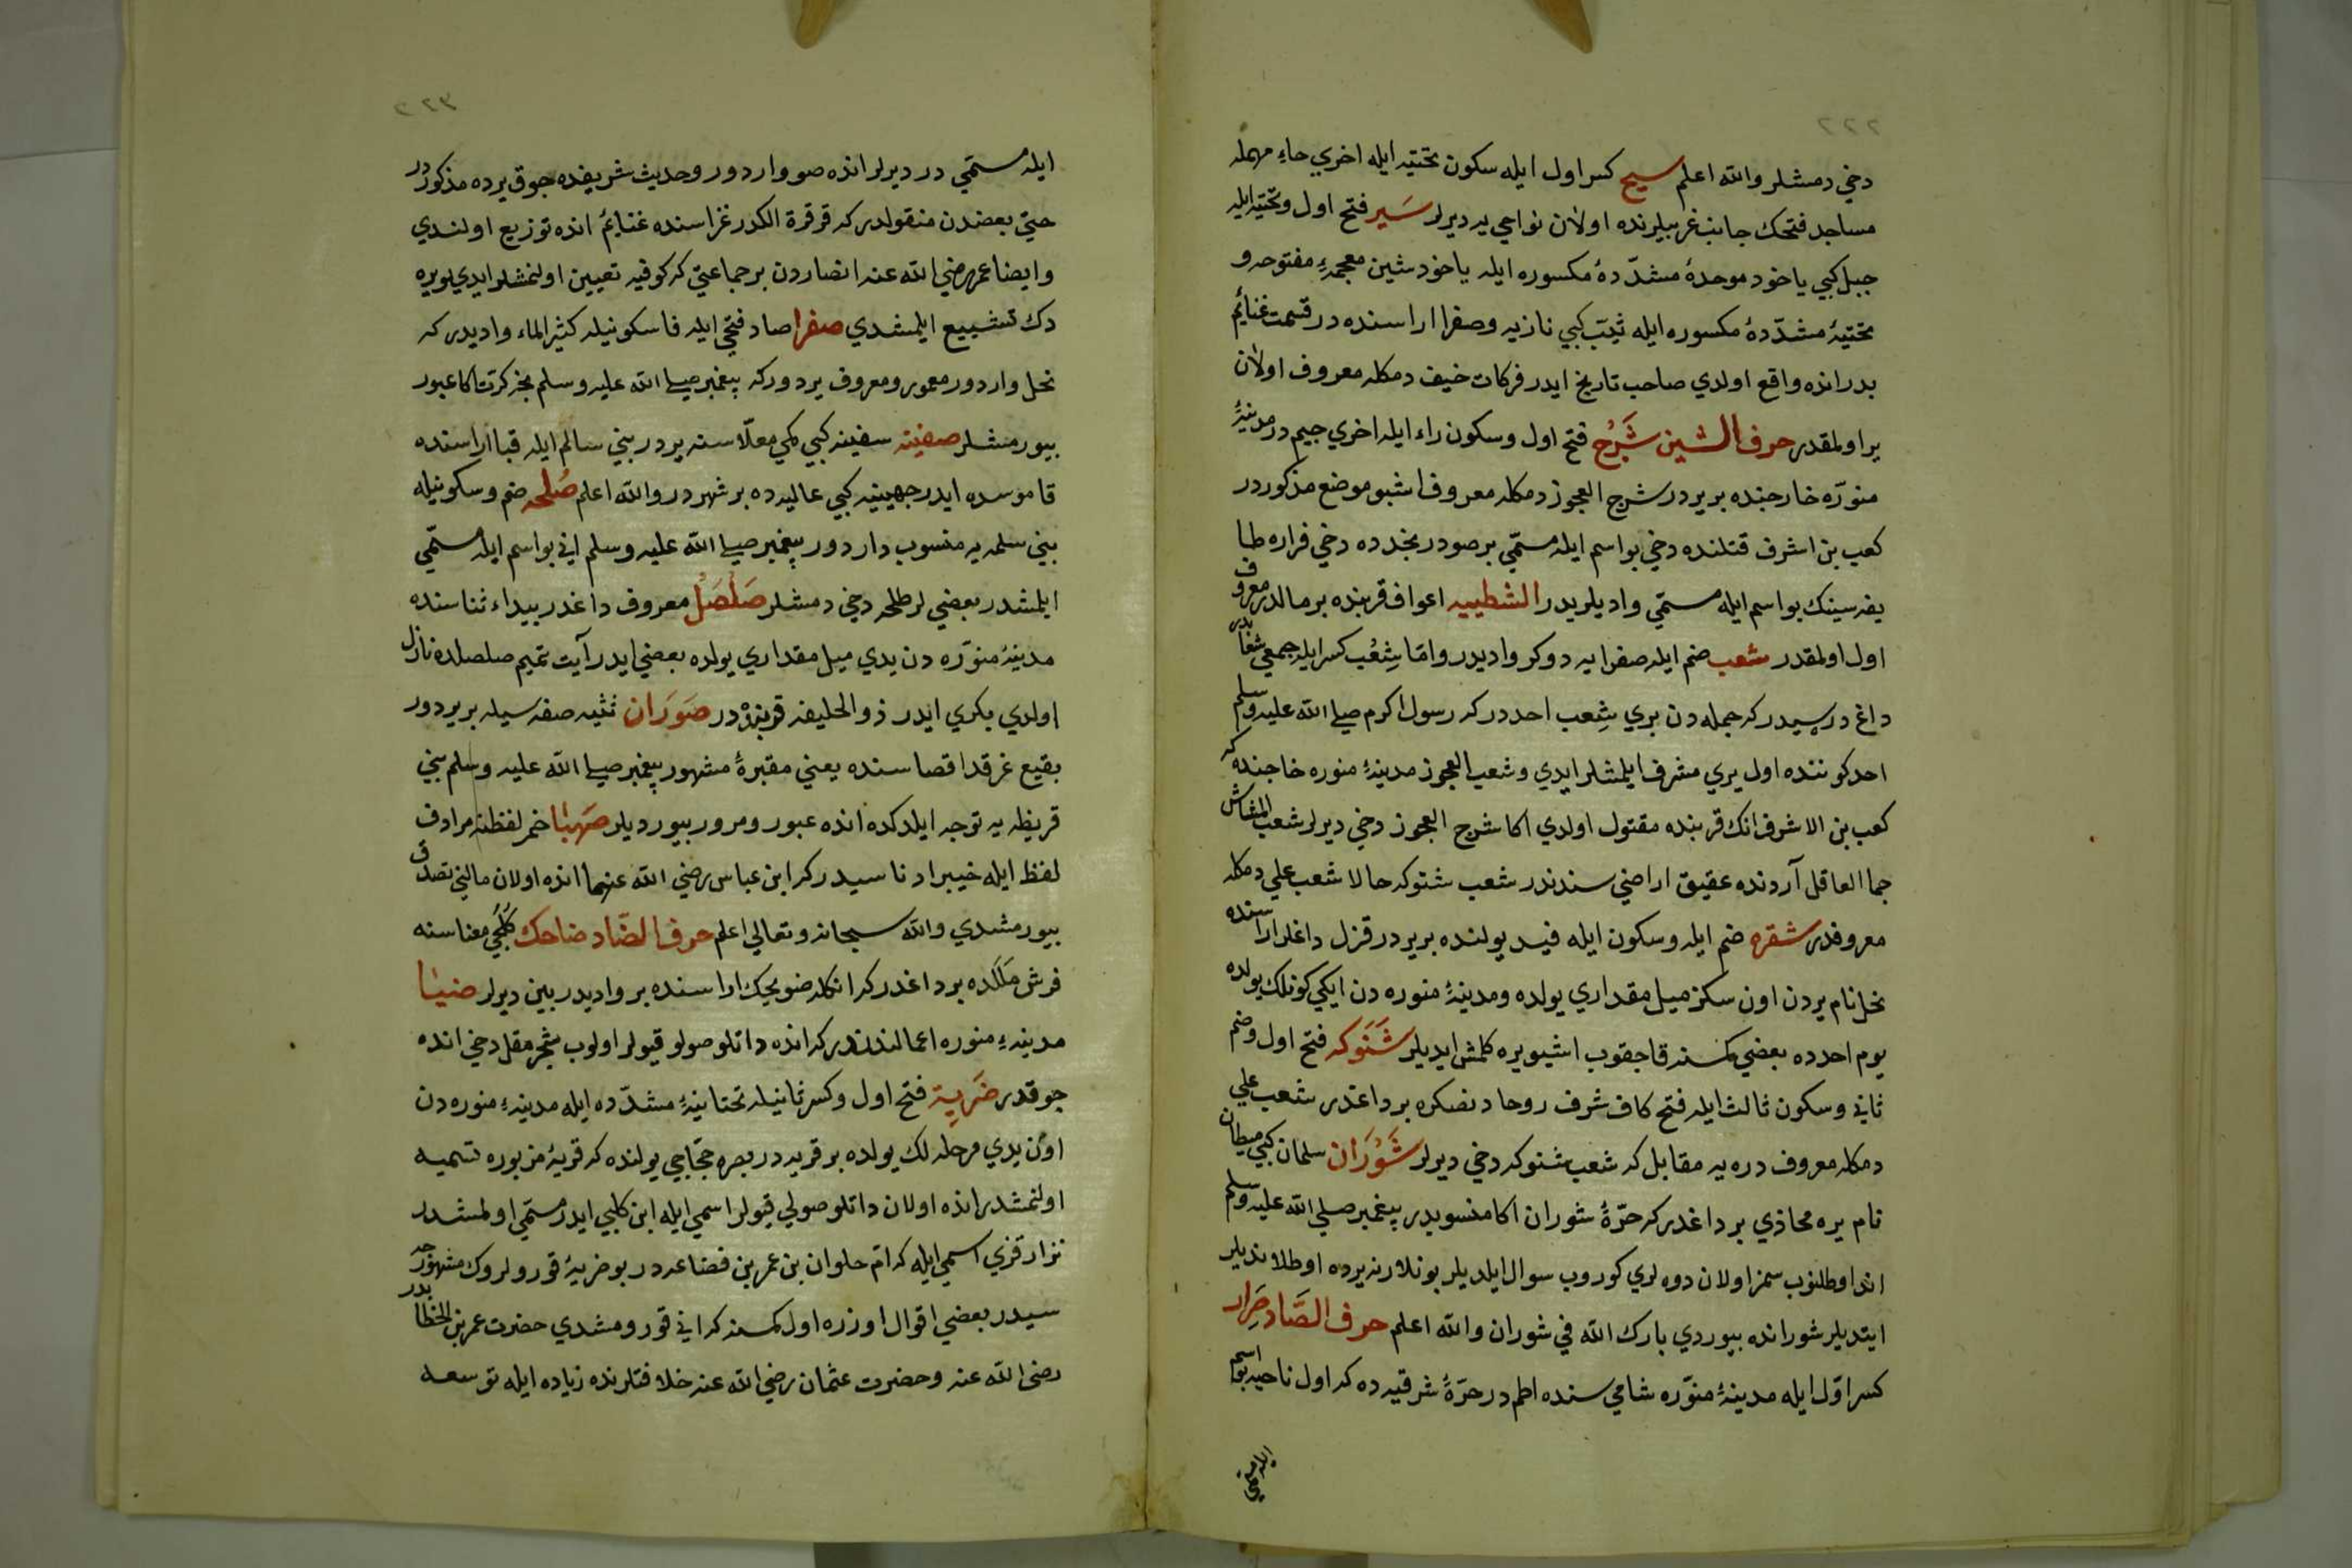 ٢٢٢
دخي دمشلر والله اعلم سيح كسر اول ايله سكون تحتيه ايله اخري حاء مهمله
مساجد فتحك جانب غربيلرنده اولان نواحي يه ديرلر سَير فتح اول وتحتيه ايله
جبل كبي ياخود موحدۀ مشدّدۀ مكسوره ايله ياخود شين معجمۀ مفتوحه و
تحتيۀ مشدّدۀ مكسوره ايله ثيّب كبي نازيه وصفرا اراسنده در قسمت غنايم
بدر انده واقع اولدي صاحب تاريخ ايدر فركات خيف دمكله معروف اولان
ير اولمقدر حرف الشين شَرْج فتح اول وسكون راء ايله اخري جيم در مدينۀ
منورّه خارجنده بر يردر شرج العجوز دمكله معروف اشبو موضع مذكوردر
كعب بن اشرف قتلنده دخي بو اسم ايله مسمّي بر صودر نجدده دخي فزاره طا
يفه سينك بو اسم ايله مسمّي واديلريدر الشطيبيه اعواف قربنده بر مالدر معروف
اول اولمقدر شعب ضم ايله صفرايه دوكر واديدر وامّا شِعْب كسر ايله جمعي شعابدر
داغ دره سيدر كه جمله دن بري شِعب احددر كه رسول اكرم صلي الله عليه وسلم
احد كوننده اول يري مشرف ايلمشلر ايدي وشعب العجوز مدينۀ منوره خارجنده كه
كعب بن الاشرف انك قربنده مقتول اولدي اكا شرج العجوز دخي ديرلر شعب المشاش
جما العاقل آردنده عقيق اراضي سندندر شعب شنوكه حالا شعب علي دمكله
معروفدر شقره ضم ايله وسكون ايله فيد يولنده بر يردر قزل داغلر اراسنده
نخل نام يردن اون سكز ميل مقداري يولده ومدينۀ منوره دن ايكي كونلك يولده
يوم احدده بعضي كمسنه قاجقوب اشبو يره كلمش ايديلر شَنَوكه فتح اول وضم
ثاني وسكون ثالث ايله فتح كاف شرف روحادنصكره بر داغدر شعب علي
دمكله معروف دره يه مقابل كه شعب شنوكه دخي ديرلر شَوْرَان سلمان كبي ميطان
نام يره محاذي بر داغدر كه حرّۀ شوران اكا منسوبدر پيغمبر صلي الله عليه وسلم
انده اوطلنوب سمز اولان دوه لري كوروب سوال ايلديلر بونلار نه يرده اوطلانديلر
ايتديلر شورانده بيوردي بارك الله في شوران والله اعلم حرف الصَّاد صَِرار
كسر اوّل ايله مدينۀ منوّره شامي سنده اطم در حرّۀ شرقيه ده كه اول ناحيه بو اسم
ايله مسمي
٢٢٣
ايله مسمّي در ديرلر انده صو واردور وحديث شريفده جوق يرده مذكوردر
حتي بعضدن منقولدر كه قرقرة الكدر غزاسنده غنايم انده توزيع اولندي
وايضا عمر رضي الله عنه انصاردن بر جماعتي كه كوفيه تعيين اولنمشلر ايدي بو يره
دك تشييع ايلمشدي صفرا صاد فتحي ايله فا سكونيله كثير الماء واديدر كه
نخل واردور معمور ومعروف يردوركه پيغمبر صلي الله عليه وسلم نجه كرت اكا عبور
بيورمشلر صفينه سفينه كبي كمي معلّا سنه يردر بني سالم ايله قبا اراسنده
قاموسده ايدر جهينه كبي عاليه ده بر شهردر والله اعلم صُلحه ضم وسكونيله
بني سلمه يه منسوب داردور پيغمبر صلي الله عليه وسلم اني بو اسم ايله مسمّي
ايلمشدر بعضي لر طلحه دخي دمشلر صَلْصَل معروف داغدر بيداء ثناسنده
مدينۀ منوّره دن يدي ميل مقداري يولده بعضي ايدر آيت تيمم صلصلده نازل
اولدي بكري ايدر ذو الحليفه قربنده در صَوَرَان تثنيه صفه سيله بر يردور
بقيع غرقد اقصاسنده يعني مقبرۀ مشهور پيغمبر صلي الله عليه وسلم بني
قريظه يه توجه ايلدكده انده عبور ومرور بيورديلر صَهبَا خمر لفظنه مرادف
لفظ ايله خيبر ادناسيدر كه ابن عباس رضي الله عنهما انده اولان مالني تصدق
بيورمشدي والله سبحانه وتعالي اعلم حرف الضّاد ضاحك كُلُجي معناسنه
فرش مَلَلده بر داغدر كه انكله ضويحك اراسنده بر واديدر يين ديرلر ضبُا
مدينۀ منوره اعمالندندر كه انده داتلو صولو قيولر اولوب شجر مقل دخي انده
جوقدر ضَرِيۀ فتح اول وكسر ثانيله تحتانيۀ مشدّده ايله مدينۀ منوره دن
اون يدي مرحله لك يولده بر قريه در بصره حجّاجي يولنده كه قريۀ مزبوره تسميه
اولنمشدر انده اولان داتلو صولي قيولر اسمي ايله ابن كلبي ايدر مسمّي اولمشدر
نزار قزي اسمي ايله كه ام حلوان بن عمر بن قضاعه در بو ضريۀ قورولروك مشهورجه
سيدر بعضي اقوال اوزره اول كمسنه كه اني قورومشدي حضرت عمر بن الخطابدر
رضي الله عنه وحضرت عثمان رضي الله عنه خلافتلرنده زياده ايله توسعه